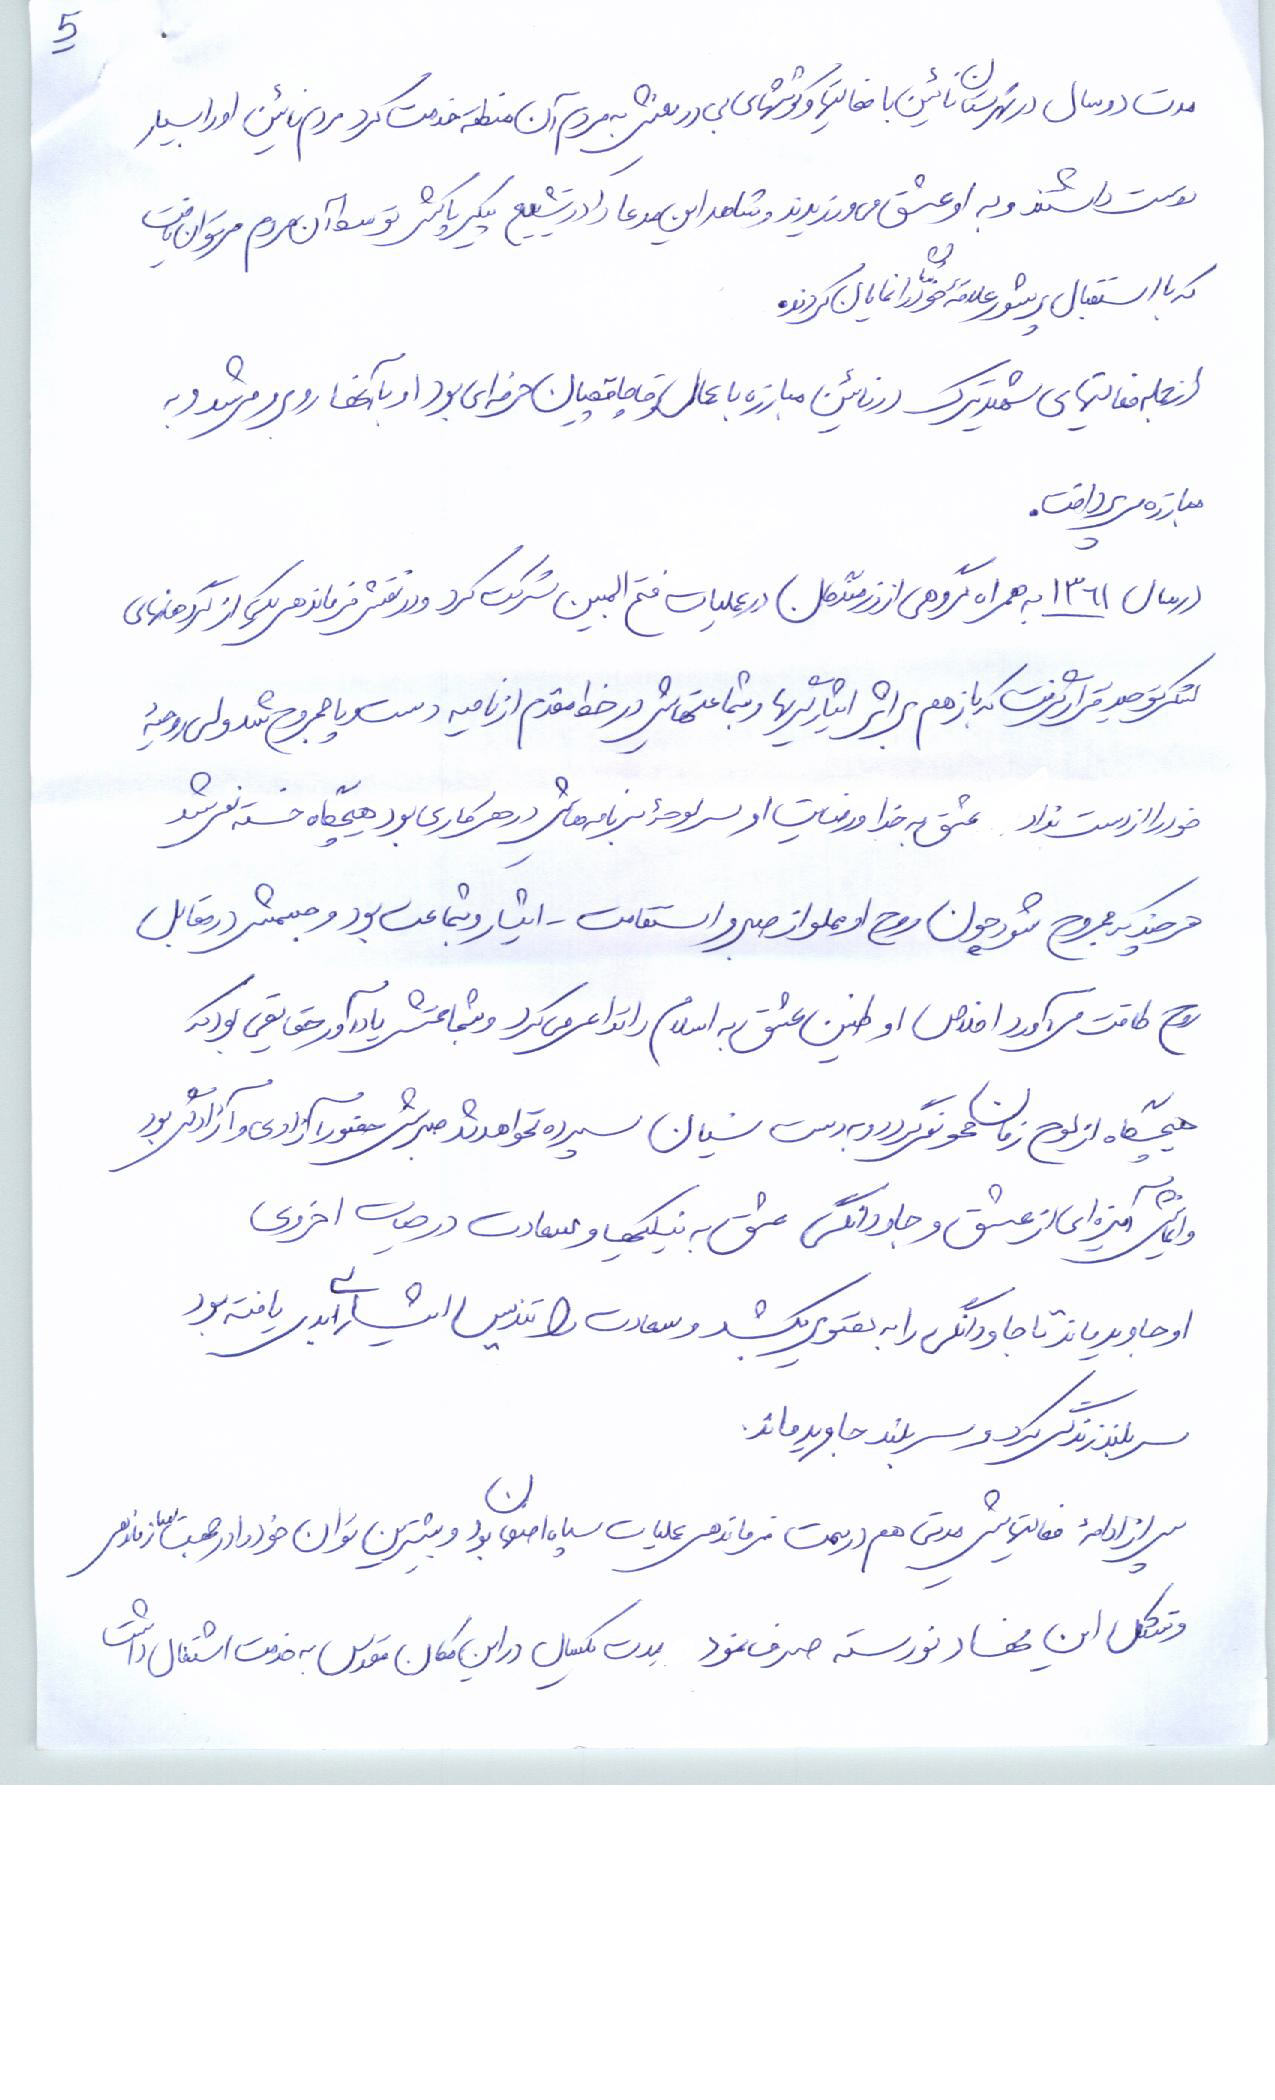 5
مدت دو سال در شهرستان نائین با فعالیتها و کوششهای بی دریغش به مردم آن منطقه خدمت کرد مردم نائین او را بسیار
دوست داشتند و به او عشق می ورزیدند و شاهد این مدعا را در تشییع پیکر پاکش توسط آن مردم می توان یافت
که با استقبال پرشور علاقهٔ خودشان را نمایان کردند.
از جمله فعالیتهای شهید ترک در نائین مبارزه با عمال و قاچاقچیان حرفه ای بود او با آنها روبرو می شد و به
مبارزه می پرداخت.
در سال ۱۳۶۱ به همراه گروهی از رزمندگان در عملیات فتح المبین شرکت کرد و در نقش فرماندهی یکی از گردانهای
لشکر توحید قرار گرفت که باز هم بر اثر ایثارگریها و شجاعتهایش در خط مقدم از ناحیه دست و پا مجروح شد ولی روحیهٔ
خود را از دست نداد عشق به خدا و رضایت او سرلوحهٔ برنامه هایش در هر کاری بود هیچگاه خسته نمی شد
هر چند که مجروح شود چون روح او مملو از صبر و استقامت - ایثار و شجاعت بود و جسمش در مقابل
روح طاقت می آورد اخلاص او طنین عشق به اسلام را تداعی می کرد و شجاعتش یادآور حقایقی بود که
هیچگاه از لوح زمان محو نمی گردد و به دست نسیان سپرده نخواهد شد صبرش حضور آزادی و آزادگی بود
و ایمانش آمیزه ای از عشق و جاودانگی عشق به نیکیها و سعادت در حیات اخروی
او جاوید ماند تا جاودانگی را به تصویر بکشد و سعادت را تندیس ایثار ابدی یافته بود
سربلند زندگی کرد و سربلند جاوید ماند.
پس از ادامهٔ فعالیتهایش مدتی هم در سمت فرماندهی عملیات سپاه اصفهان بود و بیشترین توان خود را در جهت سازماندهی
و تشکل این نهاد نورسته صرف نمود مدت یکسال در این مکان مقدس به خدمت اشتغال داشت